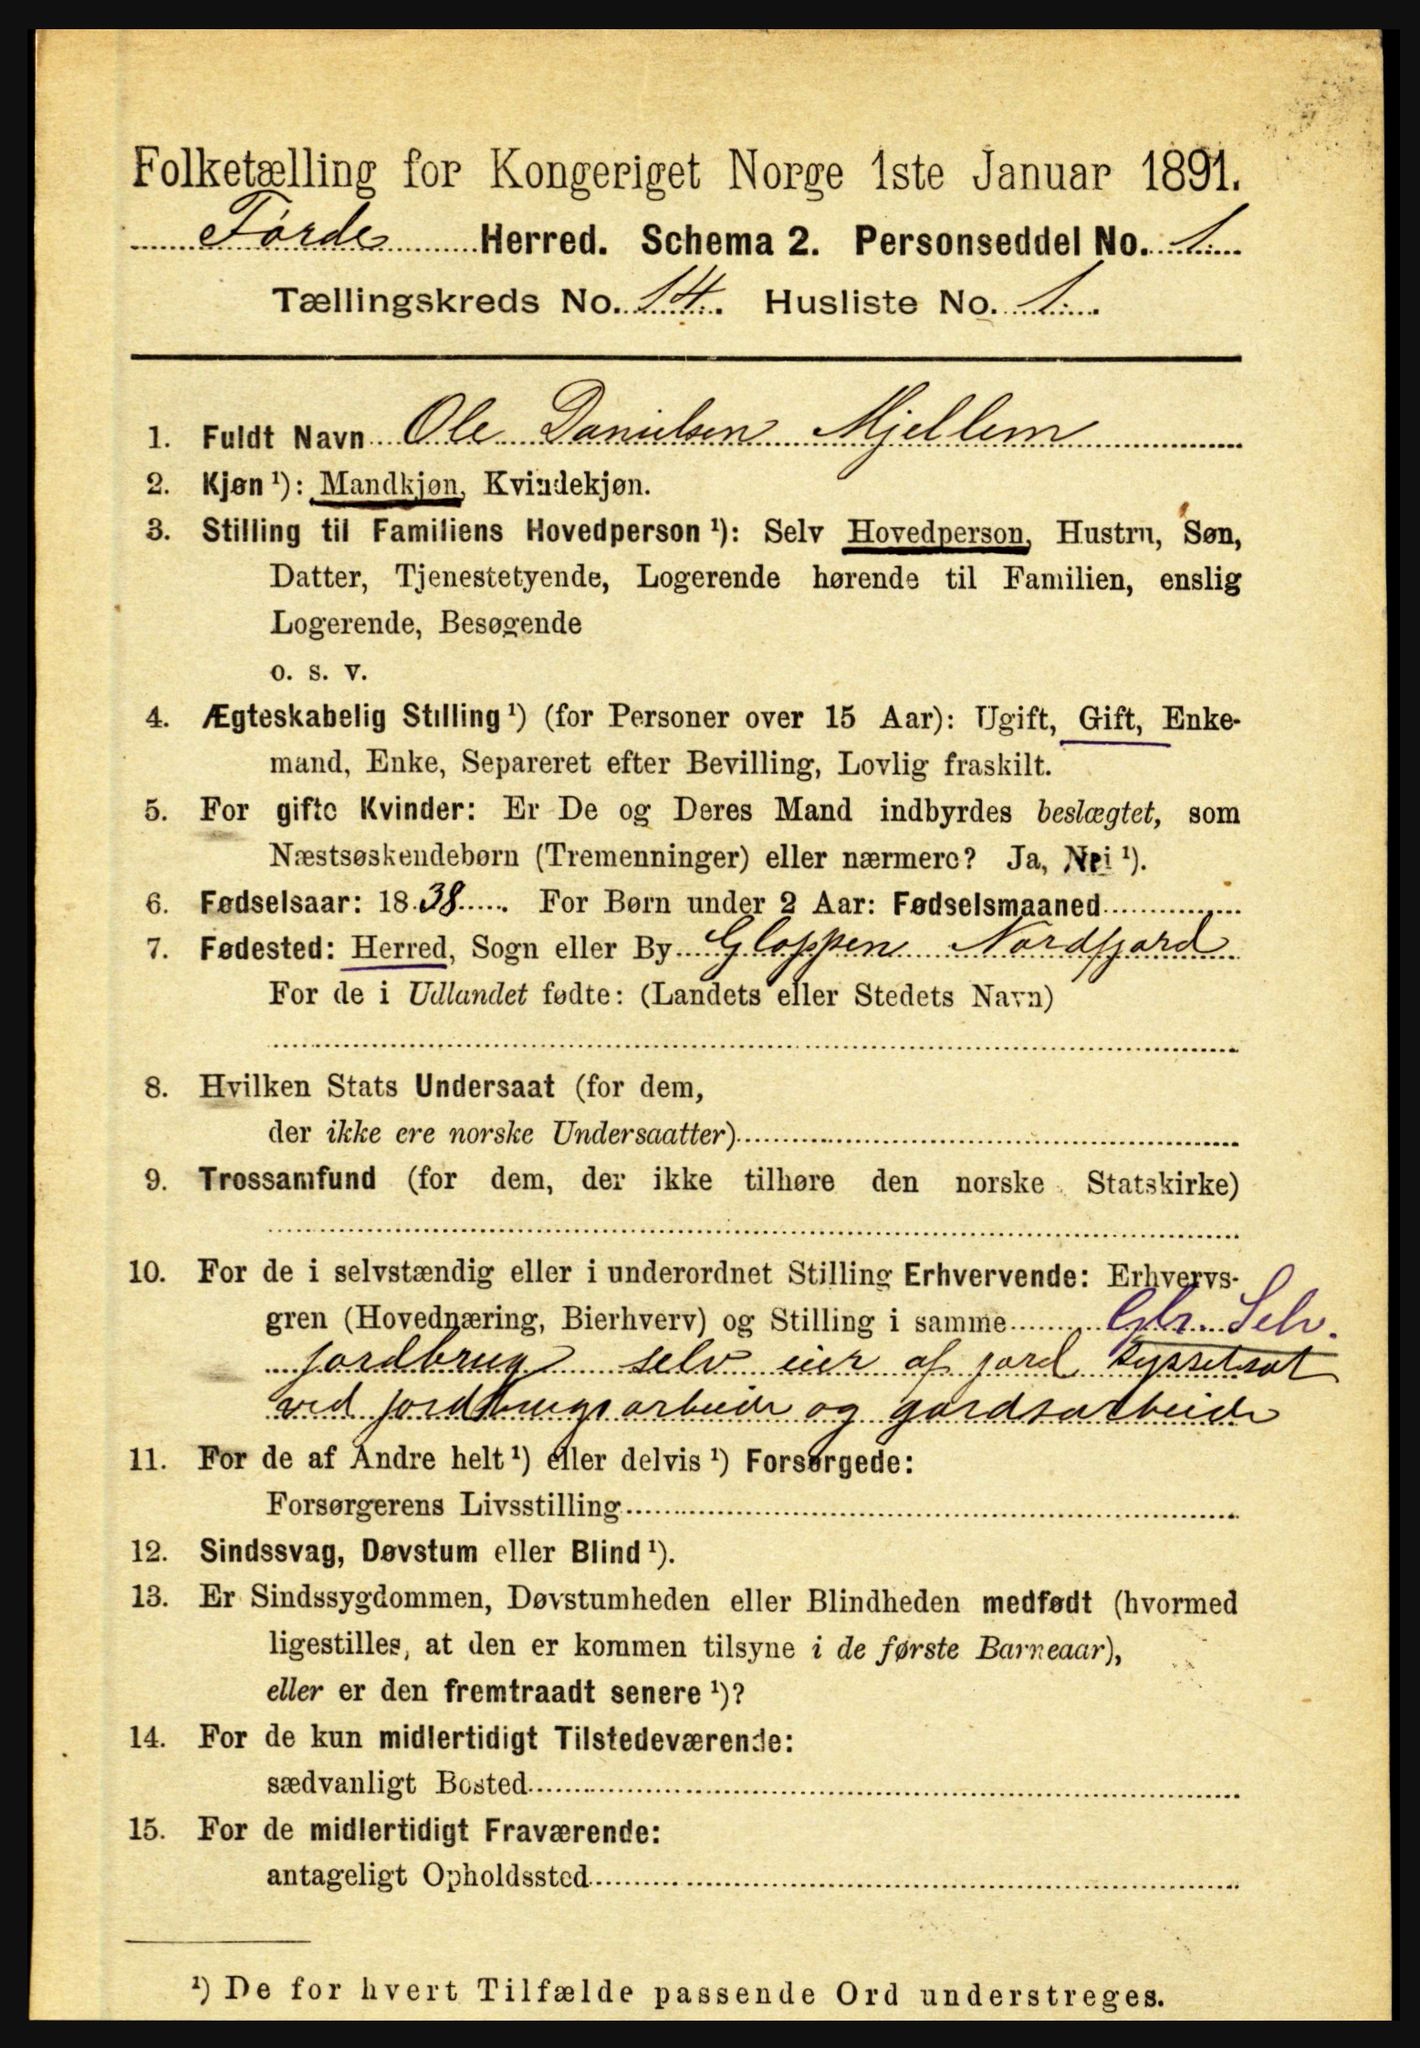 Folketælling for Kongeriget Norge 1ste Januar 1891.
Førde Herred. Schema 2. Personseddel No. 1
Tællingskreds No. 14. Husliste No. 1.
1. Fuldt Navn Ole Danielsen Mjellem
2. Kjøn ¹): Mandkjøn, Kvindekjøn.
3. Stilling til Familiens Hovedperson ¹): Selv Hovedperson, Hustru, Søn,
Datter, Tjenestetyende, Logerende hørende til Familien, enslig
Logerende, Besøgende
o. s. v.
4. Ægteskabelig Stilling ¹) (for Personer over 15 Aar): Ugift, Gift, Enke-
mand, Enke, Separeret efter Bevilling, Lovlig fraskilt.
5. For gifte Kvinder: Er De og Deres Mand indbyrdes beslægtet, som
Næstsøskendebørn (Tremenninger) eller nærmere? Ja, Nei ¹).
6. Fødselsaar: 1838. For Børn under 2 Aar: Fødselsmaaned
7. Fødested: Herred, Sogn eller By Gloppen Nordfjord
For de i Udlandet fødte: (Landets eller Stedets Navn)
8. Hvilken Stats Undersaat (for dem,
der ikke ere norske Undersaatter)
9. Trossamfund (for dem, der ikke tilhøre den norske Statskirke)
10. For de i selvstændig eller i underordnet Stilling Erhvervende: Erhvervs-
gren (Hovednæring, Bierhverv) og Stilling i samme Gbr. Selv.
jordbrug selv eier af jord sysselsat
ved jordbrugsarbeide og gardsarbeide
11. For de af Andre helt ¹) eller delvis ¹) Forsørgede:
Forsørgerens Livsstilling
12. Sindssvag, Døvstum eller Blind ¹).
13. Er Sindssygdommen, Døvstumheden eller Blindheden medfødt (hvormed
ligestilles, at den er kommen tilsyne i de første Barneaar),
eller er den fremtraadt senere ¹)?
14. For de kun midlertidigt Tilstedeværende:
sædvanligt Bosted
15. For de midlertidigt Fraværende:
antageligt Opholdssted
¹) De for hvert Tilfælde passende Ord understreges.